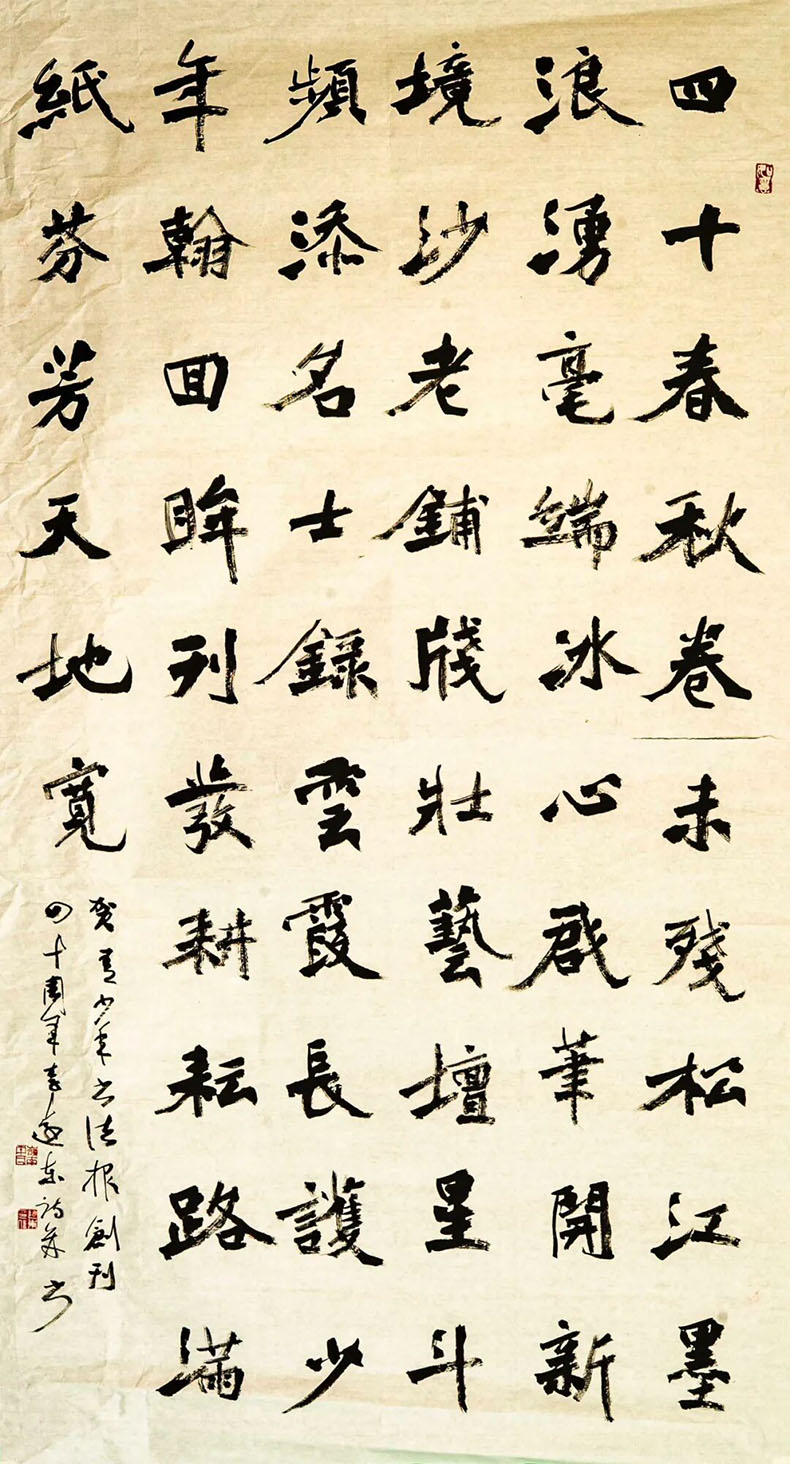 四十春秋卷未殘松江墨
浪湧毫端冰心啟筆開新
境沙老鋪牋壯藝壇星斗
頻添名士錄雲霞長護少
年翰囬眸刊發耕耘路滿
紙芬芳天地寬
贺青少年书法报創刊
四十周年李東詩并书